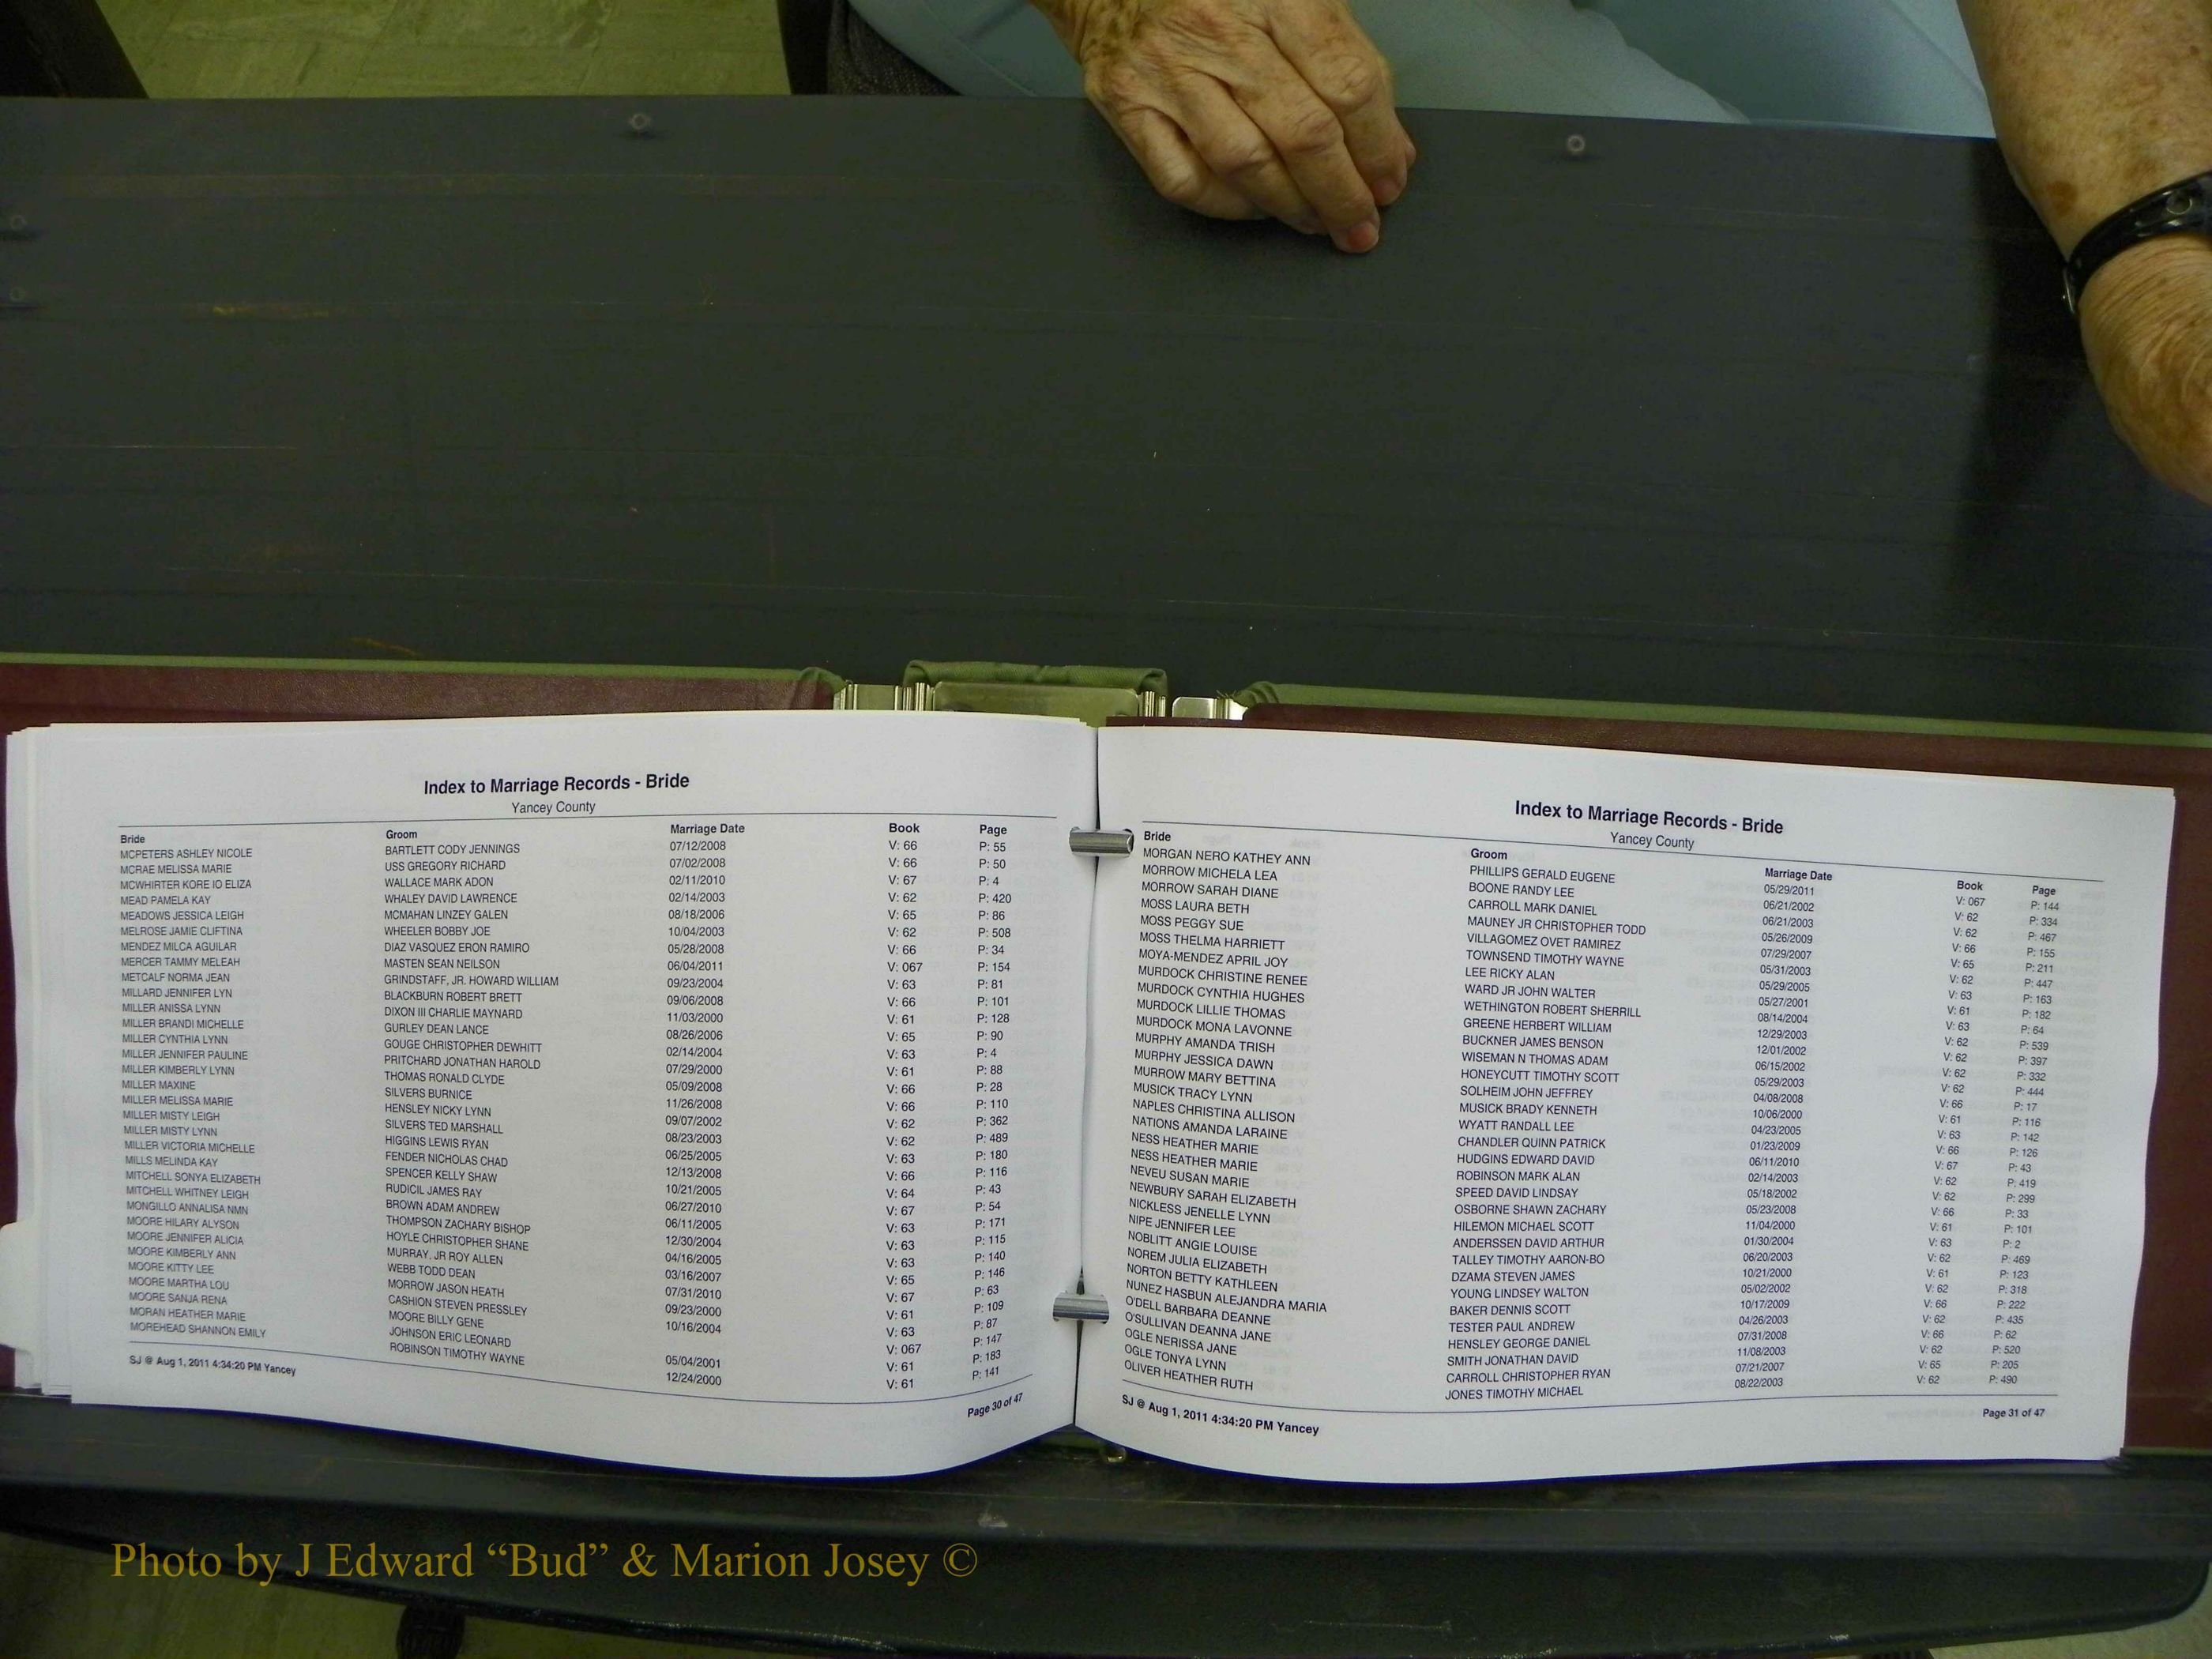 Index to Marriage Records - Bride
Yancey County
Bride Groom Marriage Date Book Page
MCPETERS ASHLEY NICOLE BARTLETT CODY JENNINGS 07/12/2008 V: 66 P: 55
MCRAE MELISSA MARIE USS GREGORY RICHARD 07/02/2008 V: 66 P: 50
MCWHIRTER KORE IO ELIZA WALLACE MARK ADON 02/11/2010 V: 67 P: 4
MEAD PAMELA KAY WHALEY DAVID LAWRENCE 02/14/2003 V: 62 P: 420
MEADOWS JESSICA LEIGH MCMAHAN LINZEY GALEN 08/18/2006 V: 65 P: 86
MELROSE JAMIE CLIFTINA WHEELER BOBBY JOE 10/04/2003 V: 62 P: 508
MENDEZ MILCA AGUILAR DIAZ VASQUEZ ERON RAMIRO 05/28/2008 V: 66 P: 34
MERCER TAMMY MELEAH MASTEN SEAN NEILSON 06/04/2011 V: 067 P: 154
METCALF NORMA JEAN GRINDSTAFF, JR. HOWARD WILLIAM 09/23/2004 V: 63 P: 81
MILLARD JENNIFER LYN BLACKBURN ROBERT BRETT 09/06/2008 V: 66 P: 101
MILLER ANISSA LYNN DIXON III CHARLIE MAYNARD 11/03/2000 V: 61 P: 128
MILLER BRANDI MICHELLE GURLEY DEAN LANCE 08/26/2006 V: 65 P: 90
MILLER CYNTHIA LYNN GOUGE CHRISTOPHER DEWHITT 02/14/2004 V: 63 P: 4
MILLER JENNIFER PAULINE PRITCHARD JONATHAN HAROLD 07/29/2000 V: 61 P: 88
MILLER KIMBERLY LYNN THOMAS RONALD CLYDE 05/09/2008 V: 66 P: 28
MILLER MAXINE SILVERS BURNICE 11/26/2008 V: 66 P: 110
MILLER MELISSA MARIE HENSLEY NICKY LYNN 09/07/2002 V: 62 P: 362
MILLER MISTY LEIGH SILVERS TED MARSHALL 08/23/2003 V: 62 P: 489
MILLER MISTY LYNN HIGGINS LEWIS RYAN 06/25/2005 V: 63 P: 180
MILLER VICTORIA MICHELLE FENDER NICHOLAS CHAD 12/13/2008 V: 66 P: 116
MILLS MELINDA KAY SPENCER KELLY SHAW 10/21/2005 V: 64 P: 43
MITCHELL SONYA ELIZABETH RUDICIL JAMES RAY 06/27/2010 V: 67 P: 54
MITCHELL WHITNEY LEIGH BROWN ADAM ANDREW 06/11/2005 V: 63 P: 171
MONGILLO ANNALISA NMN THOMPSON ZACHARY BISHOP 12/30/2004 V: 63 P: 115
MOORE HILARY ALYSON HOYLE CHRISTOPHER SHANE 04/16/2005 V: 63 P: 140
MOORE JENNIFER ALICIA MURRAY, JR ROY ALLEN 03/16/2007 V: 65 P: 146
MOORE KIMBERLY ANN WEBB TODD DEAN 07/31/2010 V: 67 P: 63
MOORE KITTY LEE MORROW JASON HEATH 09/23/2000 V: 61 P: 109
MOORE MARTHA LOU CASHION STEVEN PRESSLEY 10/16/2004 V: 63 P: 87
MOORE SANJA RENA MOORE BILLY GENE V: 067 P: 147
MORAN HEATHER MARIE JOHNSON ERIC LEONARD 05/04/2001 V: 61 P: 183
MOREHEAD SHANNON EMILY ROBINSON TIMOTHY WAYNE 12/24/2000 V: 61 P: 141
SJ @ Aug 1, 2011 4:34:20 PM Yancey Page 30 of 47
Index to Marriage Records - Bride
Yancey County
Bride Groom Marriage Date Book Page
MORGAN NERO KATHEY ANN PHILLIPS GERALD EUGENE 05/29/2011 V: 067 P: 144
MORROW MICHELA LEA BOONE RANDY LEE 06/21/2002 V: 62 P: 334
MORROW SARAH DIANE CARROLL MARK DANIEL 06/21/2003 V: 62 P: 467
MOSS LAURA BETH MAUNEY JR CHRISTOPHER TODD 05/26/2009 V: 66 P: 155
MOSS PEGGY SUE VILLAGOMEZ OVET RAMIREZ 07/29/2007 V: 65 P: 211
MOSS THELMA HARRIETT TOWNSEND TIMOTHY WAYNE 05/31/2003 V: 62 P: 447
MOYA-MENDEZ APRIL JOY LEE RICKY ALAN 05/29/2005 V: 63 P: 163
MURDOCK CHRISTINE RENEE WARD JR JOHN WALTER 05/27/2001 V: 61 P: 182
MURDOCK CYNTHIA HUGHES WETHINGTON ROBERT SHERRILL 08/14/2004 V: 63 P: 64
MURDOCK LILLIE THOMAS GREENE HERBERT WILLIAM 12/29/2003 V: 62 P: 539
MURDOCK MONA LAVONNE BUCKNER JAMES BENSON 12/01/2002 V: 62 P: 397
MURPHY AMANDA TRISH WISEMAN N THOMAS ADAM 06/15/2002 V: 62 P: 332
MURPHY JESSICA DAWN HONEYCUTT TIMOTHY SCOTT 05/29/2003 V: 62 P: 444
MURROW MARY BETTINA SOLHEIM JOHN JEFFREY 04/08/2008 V: 66 P: 17
MUSICK TRACY LYNN MUSICK BRADY KENNETH 10/06/2000 V: 61 P: 116
NAPLES CHRISTINA ALLISON WYATT RANDALL LEE 04/23/2005 V: 63 P: 142
NATIONS AMANDA LARAINE CHANDLER QUINN PATRICK 01/23/2009 V: 66 P: 126
NESS HEATHER MARIE HUDGINS EDWARD DAVID 06/11/2010 V: 67 P: 43
NESS HEATHER MARIE ROBINSON MARK ALAN 02/14/2003 V: 62 P: 419
NEVEU SUSAN MARIE SPEED DAVID LINDSAY 05/18/2002 V: 62 P: 299
NEWBURY SARAH ELIZABETH OSBORNE SHAWN ZACHARY 05/23/2008 V: 66 P: 33
NICKLESS JENELLE LYNN HILEMON MICHAEL SCOTT 11/04/2000 V: 61 P: 101
NIPE JENNIFER LEE ANDERSSEN DAVID ARTHUR 01/30/2004 V: 63 P: 2
NOBLITT ANGIE LOUISE TALLEY TIMOTHY AARON-BO 06/20/2003 V: 62 P: 469
NOREM JULIA ELIZABETH DZAMA STEVEN JAMES 10/21/2000 V: 61 P: 123
NORTON BETTY KATHLEEN YOUNG LINDSEY WALTON 05/02/2002 V: 62 P: 318
NUNEZ HASBUN ALEJANDRA MARIA BAKER DENNIS SCOTT 10/17/2009 V: 66 P: 222
O'DELL BARBARA DEANNE TESTER PAUL ANDREW 04/26/2003 V: 62 P: 435
O'SULLIVAN DEANNA JANE HENSLEY GEORGE DANIEL 07/31/2008 V: 66 P: 62
OGLE NERISSA JANE SMITH JONATHAN DAVID 11/08/2003 V: 62 P: 520
OGLE TONYA LYNN CARROLL CHRISTOPHER RYAN 07/21/2007 V: 65 P: 205
OLIVER HEATHER RUTH JONES TIMOTHY MICHAEL 08/22/2003 V: 62 P: 490
SJ @ Aug 1, 2011 4:34:20 PM Yancey Page 31 of 47
Photo by J Edward “Bud” & Marion Josey ©